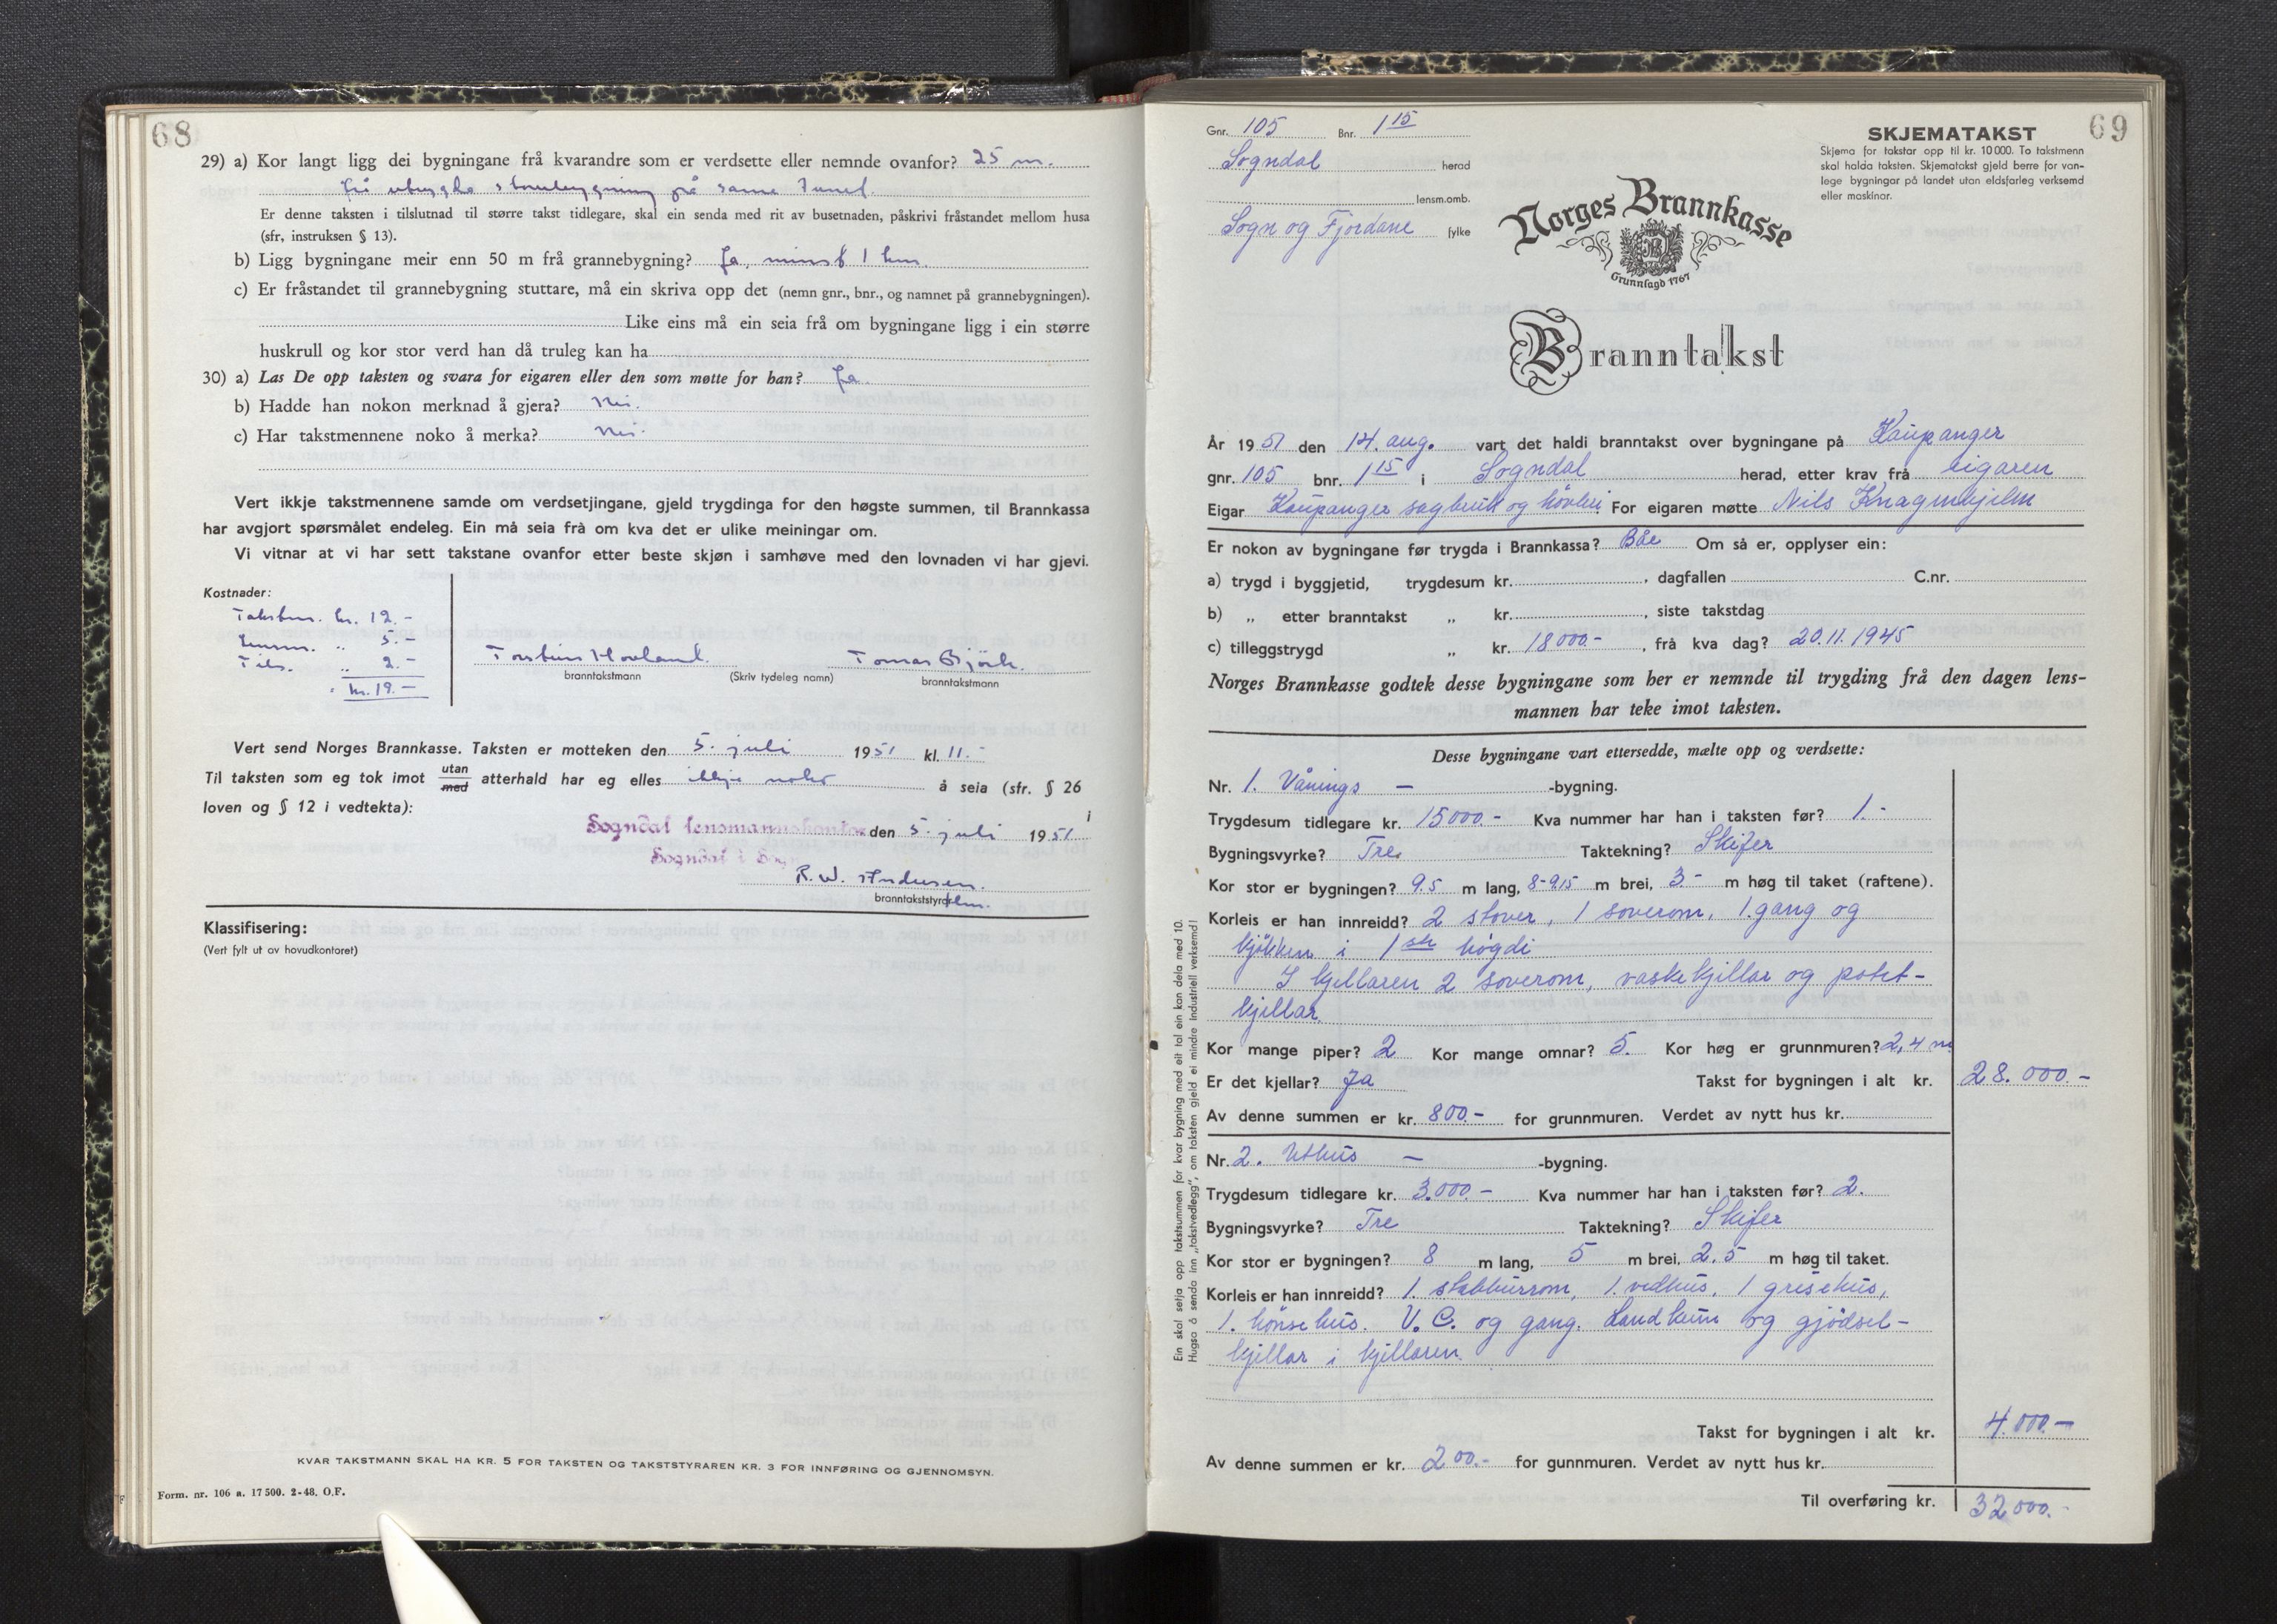 68
29) a) Kor langt ligg dei bygningane frå kvarandre som er verdsette eller nemnde ovanfor? 25 m.
frå ubygde stovebygning på same tunet.
Er denne taksten i tilslutnad til større takst tidlegare, skal ein senda med rit av busetnaden, påskrivi fråstandet mellom husa
(sfr, instruksen § 13).
b) Ligg bygningane meir enn 50 m frå grannebygning? Ja, minst 1 km.
c) Er fråstandet til grannebygning stuttare, må ein skriva opp det (nemn gnr., bnr., og namnet på grannebygningen).
Like eins må ein seia frå om bygningane ligg i ein større
huskrull og kor stor verd han då truleg kan ha
30) a) Las De opp taksten og svara for eigaren eller den som møtte for han? Ja.
b) Hadde han nokon merknad å gjera? Nei.
c) Har takstmennene noko å merka? Nei.
Vert ikkje takstmennene samde om verdsetjingane, gjeld trygdinga for den høgste summen, til Brannkassa
har avgjort spørsmålet endeleg. Ein må seia frå om kva det er ulike meiningar om.
Vi vitnar at vi har sett takstane ovanfor etter beste skjøn i samhøve med den lovnaden vi har gjevi.
Kostnader:
Takstm. kr. 12.-
Lensm. " 5.-
Tils. " 2.-
kr. 19.-
Torstein Hovland. Tomas Bjørk.
branntakstmann (Skriv tydeleg namn) branntakstmann
Vert send Norges Brannkasse. Taksten er motteken den 5. juli 1951 kl. 11.-
Til taksten som eg tok imot utan/med atterhald har eg elles ikkje noko å seia (sfr. § 26 i
loven og § 12 i vedtekta):
Sogndal lensmannskontor den 5. juli 1951.
Sogndal i Sogn
R. W. Andersen.
branntakststyrar lm.
Klassifisering:
(Vert fylt ut av hovudkontoret)
KVAR TAKSTMANN SKAL HA KR. 5 FOR TAKSTEN OG TAKSTSTYRAREN KR. 3 FOR INNFØRING OG GJENNOMSYN.
Form. nr. 106 a. 17 500. 2-48. O.F.
69
Gnr. 105 Bnr. 1 15
Sogndal herad
lensm.omb.
Sogn og Fjordane fylke
SKJEMATAKST
Skjema for takstar opp til kr. 10 000. To takstmenn
skal halda taksten. Skjematakst gjeld berre for van-
lege bygningar på landet utan eldsfarleg verksemd
eller maskinar.
Norges Brannkasse
Grunnlagd 1767
Branntakst
År 1951 den 14. aug. vart det haldi branntakst over bygningane på Kaupanger
gnr. 105 bnr. 1 15 i Sogndal herad, etter krav frå eigaren
Eigar Kaupanger sagbruk og høvleri For eigaren møtte Nils Knagenhjelm
Er nokon av bygningane før trygda i Brannkassa? Båe Om så er, opplyser ein:
a) trygd i byggjetid, trygdesum kr. , dagfallen C.nr.
b) „ etter branntakst „ kr. , siste takstdag
c) tilleggstrygd „ kr. 18000.- , frå kva dag? 20.11.1945
Norges Brannkasse godtek desse bygningane som her er nemnde til trygding frå den dagen lens-
mannen har teke imot taksten.
Desse bygningane vart ettersedde, mælte opp og verdsette:
Nr. 1. Vånings - -bygning.
Trygdesum tidlegare kr. 15000.- Kva nummer har han i taksten før? 1.-
Bygningsvyrke? Tre. Taktekning? Skifer
Kor stor er bygningen? 9.5 m lang, 8-9,15 m brei, 3.- m høg til taket (raftene).
Korleis er han innreidd? 2 stover, 1 soverom, 1. gang og
kjøkken i 1ste høgdi
I kjellaren 2 soverom, vaskekjellar og potet-
kjellar.
Kor mange piper? 2 Kor mange omnar? 5. Kor høg er grunnmuren? 2,4 m
Er det kjellar? Ja Takst for bygningen i alt kr. 28.000.-
Av denne summen er kr. 800.- for grunnmuren. Verdet av nytt hus kr.
Nr. 2. Uthus - -bygning.
Trygdesum tidlegare kr. 3.000.- Kva nummer har han i taksten før? 2.
Bygningsvyrke? Tre Taktekning? Skifer
Kor stor er bygningen? 8 m lang, 5 m brei, 2.5 m høg til taket.
Korleis er han innreidd? 1. stabbursrom, 1. vedhus, 1 grisehus,
1. hønsehus. V.C. og gang. Landkum og gjødsel-
kjellar i kjellaren.
Takst for bygningen i alt kr. 4.000.-
Av denne summen er kr. 200.- for gunnmuren. Verdet av nytt hus kr.
Til overføring kr. 32000.-
Ein skal setja opp takstsummen for kvar bygning med eit tal ein kan dela med 10.
Hugsa å senda inn „takstvedlegg", om taksten gjeld ei mindre industriell verksemd!